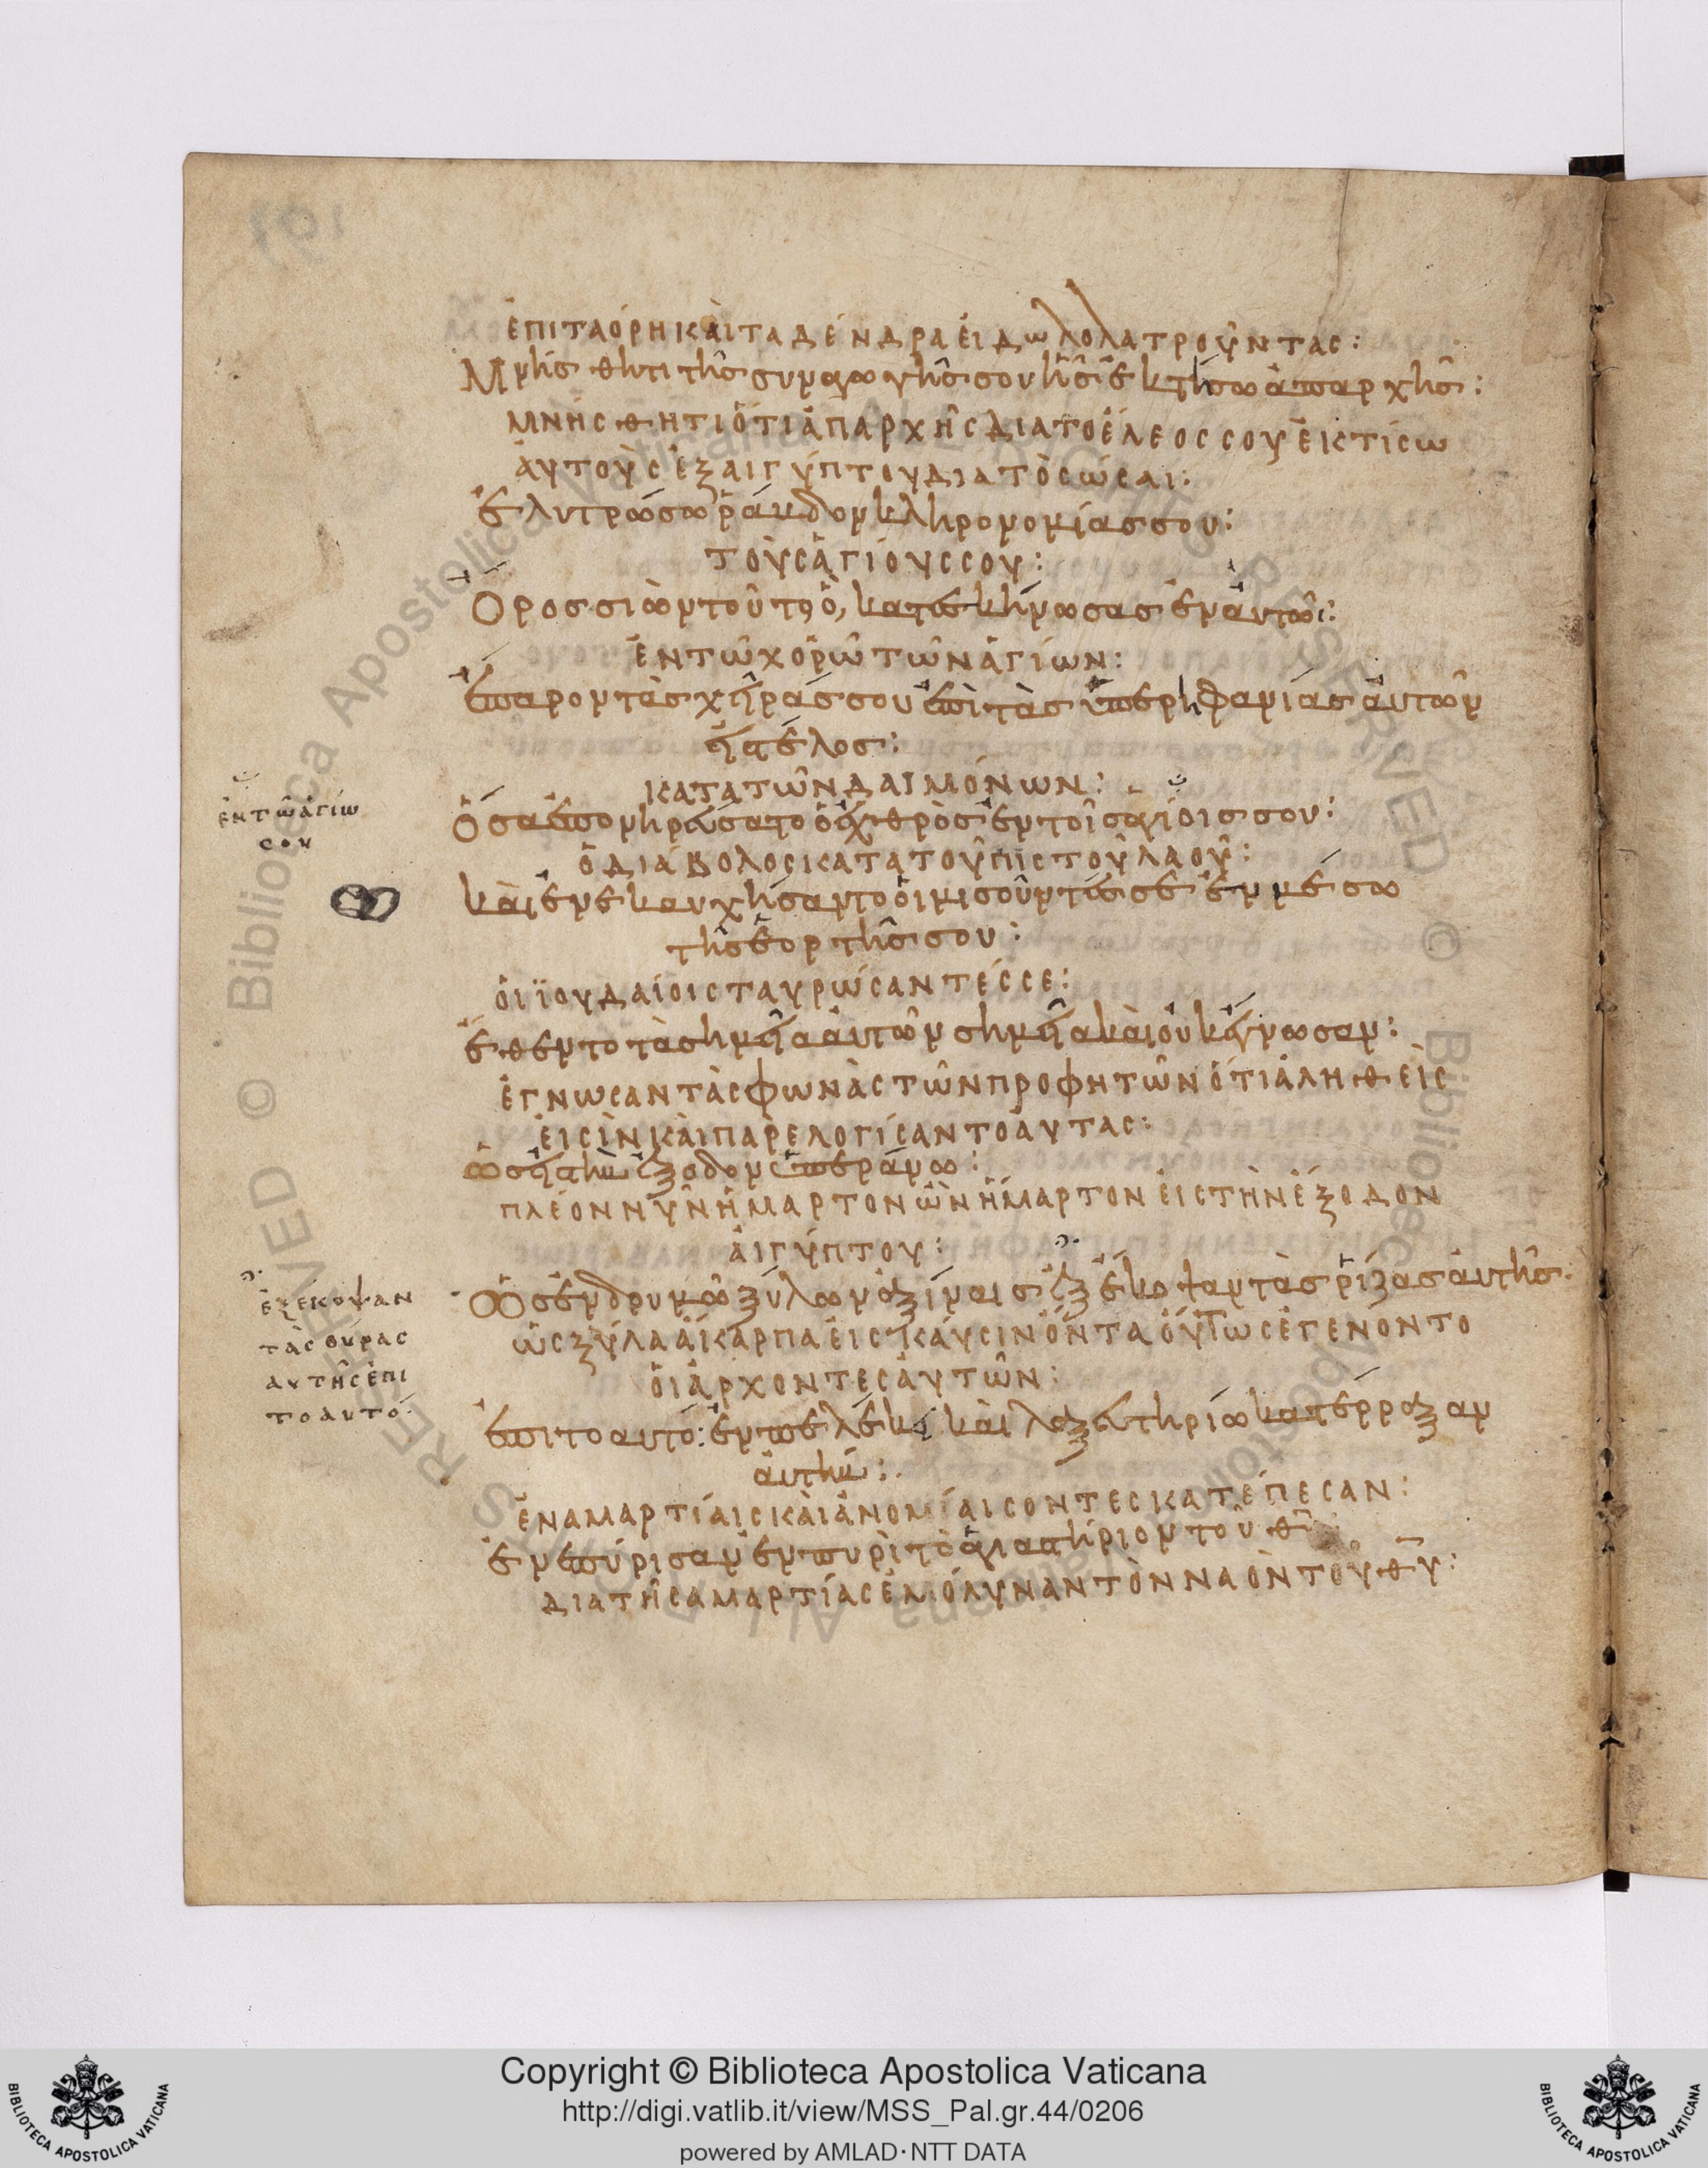 ἐπιτα όρη καὶ τα δένδρα εἰδωλολατροῦντας:
Μνήσθητι τῆς συναγωγῆς σου ἧς ἐκτήσω ἀπαρχῆς:
μνήσθητι ὅτι ἀπαρχῆς δια το ἔλεος σου ἐικτίσω
ἀυτοὺς ἐξ αιγύπτου δια τὸ σώσαι:
ἐλυτρώσω ῥάβδον κληρονομίας σου:
τοὺς ἁγίους σου:
Όρος σιὼν τοῦτο ὃ, κατεσκήνωσας ἐν ἀυτῶι:
ἐν τῶ χορῶ τῶν ἁγίων:
ἔπαρον τὰς χῆράς σου ἐπὶ τὰς ὑπερηφανίας ἀυτῶν
εἰς τέλος:
κατα τῶν δαιμόνων:
Ὅσα ἐπονηρεύσατο ὁ ἐχθρὸς ἐν τοῖς αγίοις σου:
ἐν τῶ ἁγίω
σου
ὁ διάβολος κατα τοῦ πιστοῦ λαοῦ:
καὶ ἐνεκαυχήσαντο ὁι μισοῦντές σε ἐν μέσω
τῆς ἑορτῆς σου:
ὁι ϊουδαίοι σταυρώσαντές σε:
ἔθεντο τὰ σημεῖα ἀυτῶν σημεῖα καὶ οὐκ ἔγνωσαν:
ἐγνωσαν τὰς φωνὰς τῶν προφητῶν ὅτι ἀληθεὶς
ἐισὶν καὶ παρελογίσαντο ἀυτας:
ὡς εἰς τὴν ἔξοδον ὑπεράνω:
πλέον νῦν ἥμαρτον ὧν ἥμαρτον ἐις τὴν ἔξοδον
ἀιγύπτου:
Ὡς ἐν δρυμῶ ξύλων ἀξίναις ἐξέκοψαν τὰς ῥίζας ἀυτῆς.
ἐξέκοψαν
τὰς θύρας
αυτῆς ἐπι
το αυτό.
ὡς ξύλα ἀίκαρπα ἐις καύσιν ὄντα ὅυτως ἐγενοντο
ὁι ἄρχοντες ἀυτῶν:
ἐπι το αυτό: ἐν πελέκει καὶ λαξευτηρίω κατέρραξαν
ἀυτήν:.
ἐν αμαρτίαις καὶ ἀνομίαις οντες κατέπεσαν:
ἐνεπύρισαν ἐν πυρὶ τὸ ἁγιαστήριον του
δια τῆς αμαρτίας ἐμόλυναν τὸν ναὸν τοῦ θ̅υ̅:
Copyright © Biblioteca Apostolica Vaticana
http://digi.vatlib.it/view/MSS_Pal.gr.44/0206
powered by AMLAD·NTT DATA
BIBLIOTECA APOSTOLICA VATICANA
BIBLIOTECA APOSTOLICA VATICANA